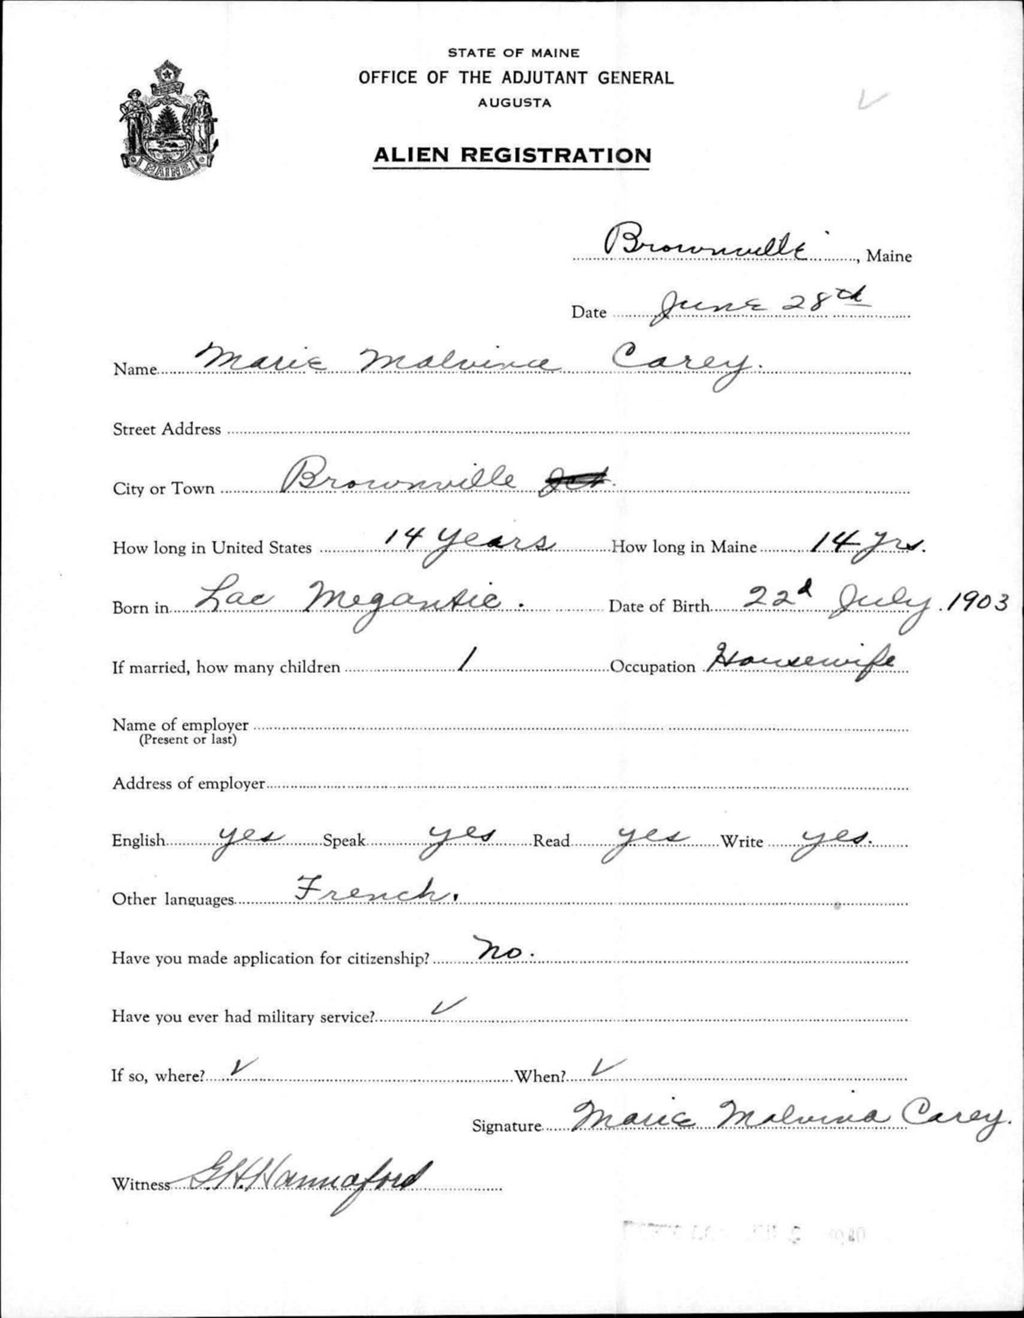 STATE OF MAINE
OFFICE OF THE ADJUTANT GENERAL
AUGUSTA
ALIEN REGISTRATION
MAINE
Brownville, Maine
Date June 28th
Name Marie Malvina Carey.
Street Address
City or Town Brownville Jct.
How long in United States 14 years How long in Maine 14 yrs.
Born in Lac Megantic. Date of Birth 22d July. 1903
If married, how many children 1 Occupation Housewife
Name of employer
(Present or last)
Address of employer
English yes Speak yes Read yes Write yes.
Other languages French.
Have you made application for citizenship? No.
Have you ever had military service? ✓
If so, where? ✓ When? ✓
Signature Marie Malvina Carey.
Witness G.H. Hannaford